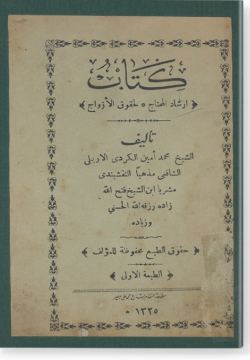 كتاب
﴿ ارشاد المحتاج * لحقوق الأزواج ﴾
تأليف
الشيخ محمد أمين الكردي الاربلي
الشافعي مذهباً النقشبندي
مشربا ابن الشيخ فتح الله
زاده رزقه الله الحسنى
وزياده
﴿ حقوق الطبع محفوظة للمؤلف ﴾
﴿ الطبعة الاولى ﴾
١٣٢٥